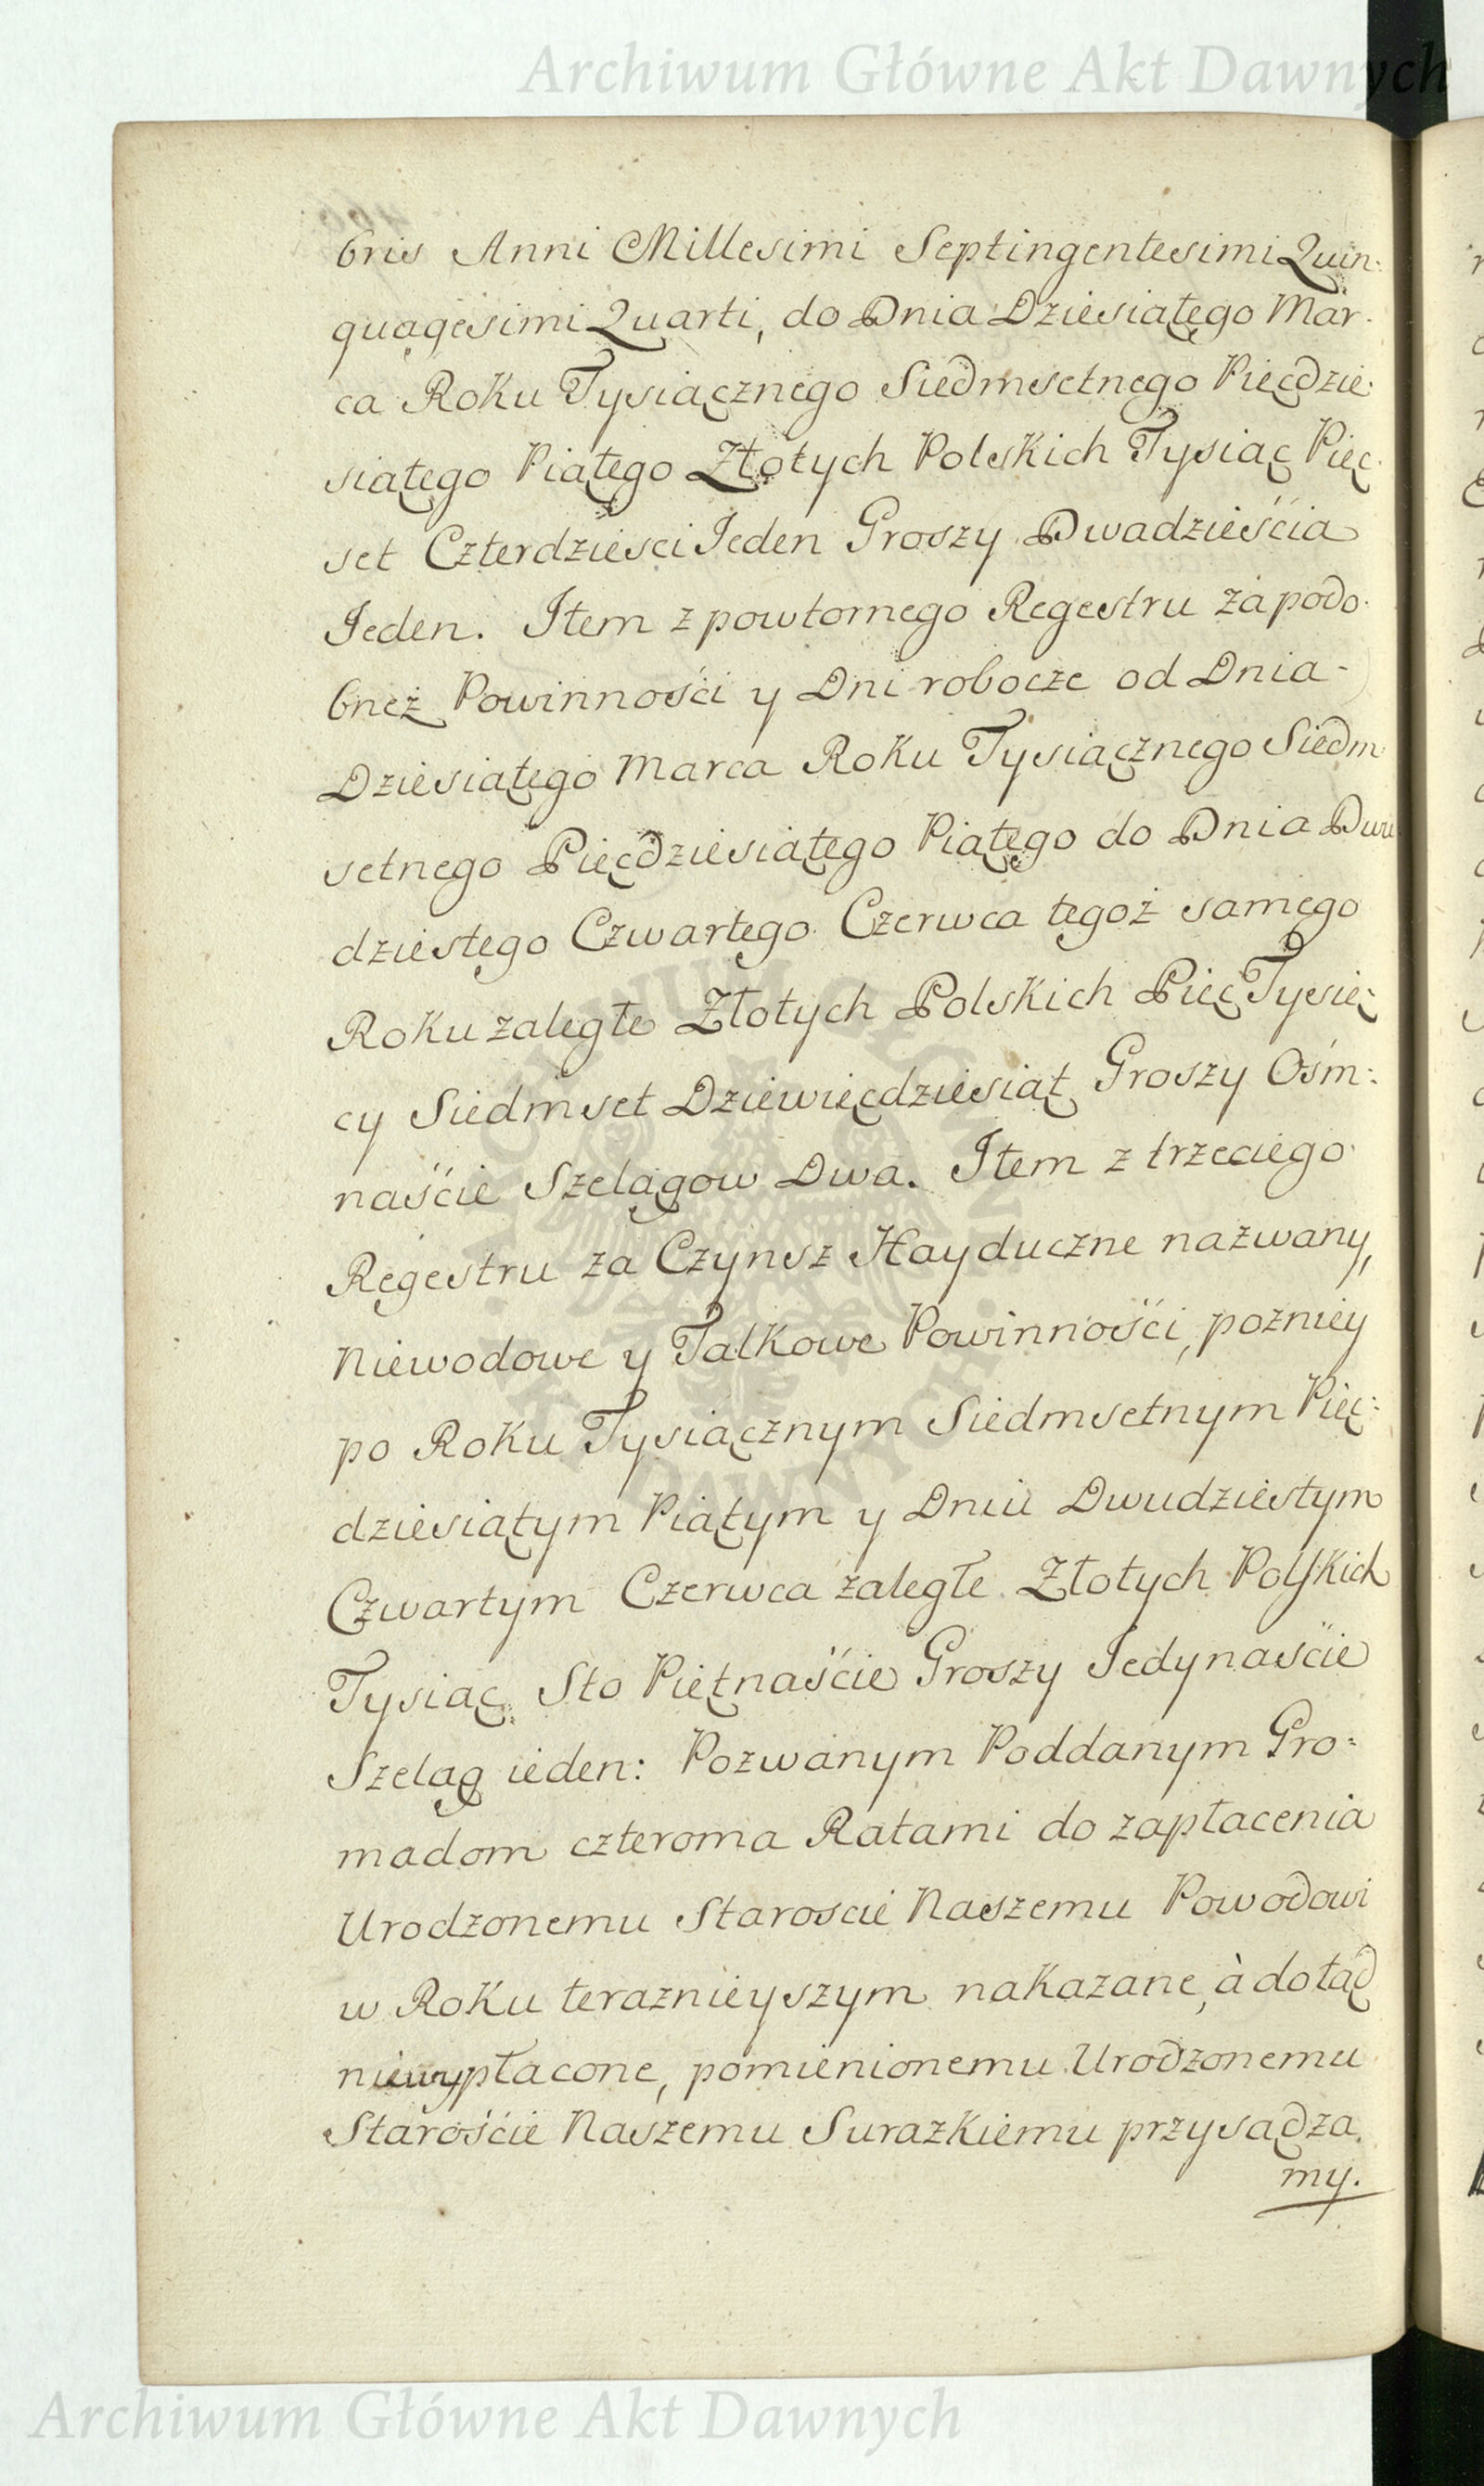 Archiwum Główne Akt Dawnych
bris Anni Millesimi Septingentesimi Quin-
quagesimi Quarti, do Dnia Dziesiątego Mar-
ca Roku Tysiącznego Siedmsetnego Pięćdzie-
siątego Piątego Złotych Polskich Tysiąc Pięć-
set Czterdzieści Jeden Groszy Dwadzieścia
Jeden. Item z powtornego Regestru za podo-
bneż Powinności y Dni robocze od Dnia-
Dziesiątego Marca Roku Tysiącznego Siedm-
setnego Pięćdziesiątego Piątego do Dnia Dwu-
dziestego Czwartego Czerwca tegoż samego
Roku zaległe Złotych Polskich Pięć Tysię-
cy Siedmset Dziewięćdziesiąt Groszy Ośm:
naście Szelągow Dwa. Item z trzeciego
Regestru za Czynsz Hayduczne nazwany,
Niewodowe y Talkowe Powinności, pozniey
po Roku Tysiącznym Siedmsetnym Pięć:
dziesiątym Piątym y Dniu Dwudziestym
Czwartym Czerwca zaległe Złotych Polskich
Tysiąc Sto Piętnaście Groszy Jedynaście
Szeląg ieden: Pozwanym Poddanym Gro=
madom czteroma Ratami do zapłacenia
Urodzonemu Staroscie Naszemu Powodowi
w Roku teraznieyszym nakazane, à dotąd
niewypłacone, pomienionemu Urodzonemu
Starościę Naszemu Surazkiemu przysądza
my.
Archiwum Główne Akt Dawnych